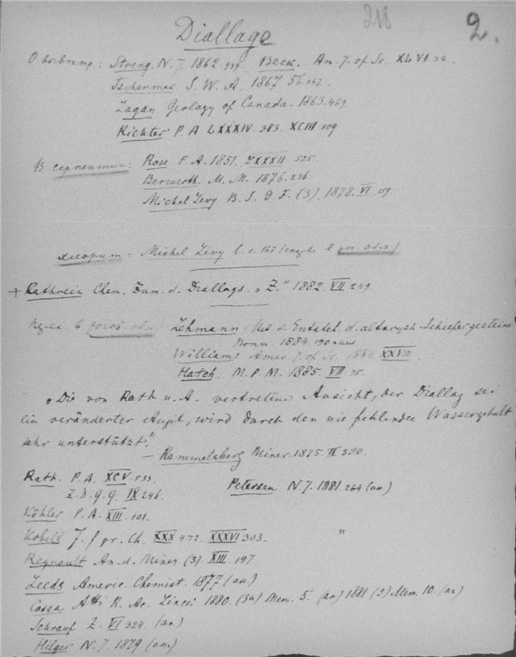 218 2.
Diallage
Streng N. J. 1862. 933. Beck. Am. J. of Sc. XLVI 32.
Tschermak S. W. A. 1867 56. 167.
Geology of Canada. 1863. 469.
Richter P. A. LXXXIV. 383. XCIII 109
Rose P. A. 1851. LXXXII 525.
Berwerth. M. M. 1876. 236
Michel Levy B. S. G. F. (3). 1878. VI. 159
Michel Levy l. c. 167
+ Kathrein Chem. Zum. d. Diallags. „Z." 1882 VII 249.
Lehmann. Ueb d. Entsteh. d. altkryst. Schiefergesteine
Bonn. 1884. 190
Williams Amer. J. of Sc. 1884 XXVIII
Hatch. M. P. M. 1885 VII 75.
„Die von Rath u. A. vertretene Ansicht, der Diallag sei
ein veränderter Augit, wird durch den nie fehlenden Wassergehalt
sehr unterstützt."
— Rammelsberg Miner. 1875. II 390.
Rath. P. A. XCV. 533. Petersen N. J. 1881. 264 (an)
Z. D. G. G. IX 246.
Köhler P. A. XIII. 101.
Kobell J. f pr. Ch. XXX 472. XXXVI 303.
Regnault An. d. Mines (3). XIII. 147
Leeds Americ. Chemist. 1877 (an.)
Cossa Atti R. Ac. Lincei 1880 (3a) Mem. 5. (an) 1881 (2) Mem. 10. (an)
Schrauf Z. VI 324. (an)
Hilger N. J. 1879 (an.)